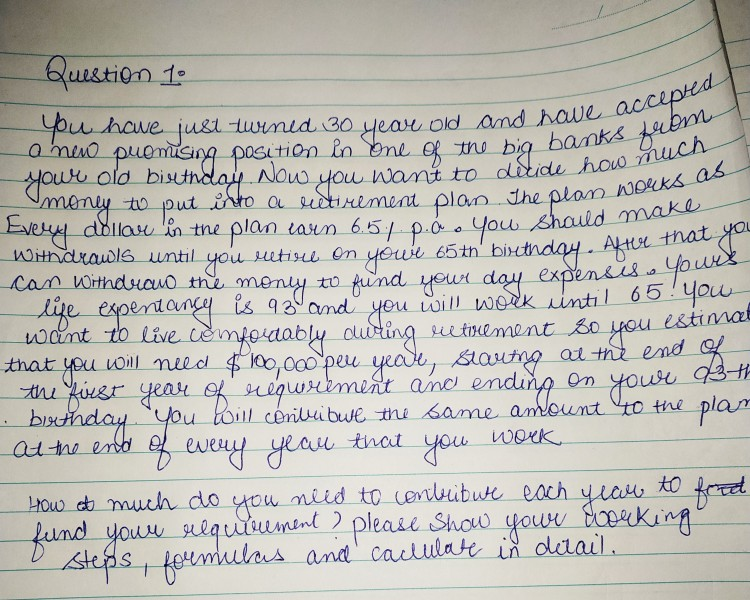 Question 1:
You have just turned 30 year old and have accepted
a new promising position in one of the big banks from
your old birthday. Now you want to decide how much
money to put into a retirement plan. The plan works as
Every dollar in the plan earn 6.5% p.a. You should make
withdrawls until you retire on your 65th birthday. After that you
can withdraw the money to fund your day expenses. Yours
life expentancy is 93 and you will work until 65! You
want to live comfordably during retirement so you estimat
that you will need $100,000 per year, starting at the end of
the first year of requirement and ending on your 93-th
birthday. You will contribute the same amount to the plan
at the end of every year that you work
How much do you need to contribute each year to
fund your requirement? please show your working
steps, formulas and caculate in detail.